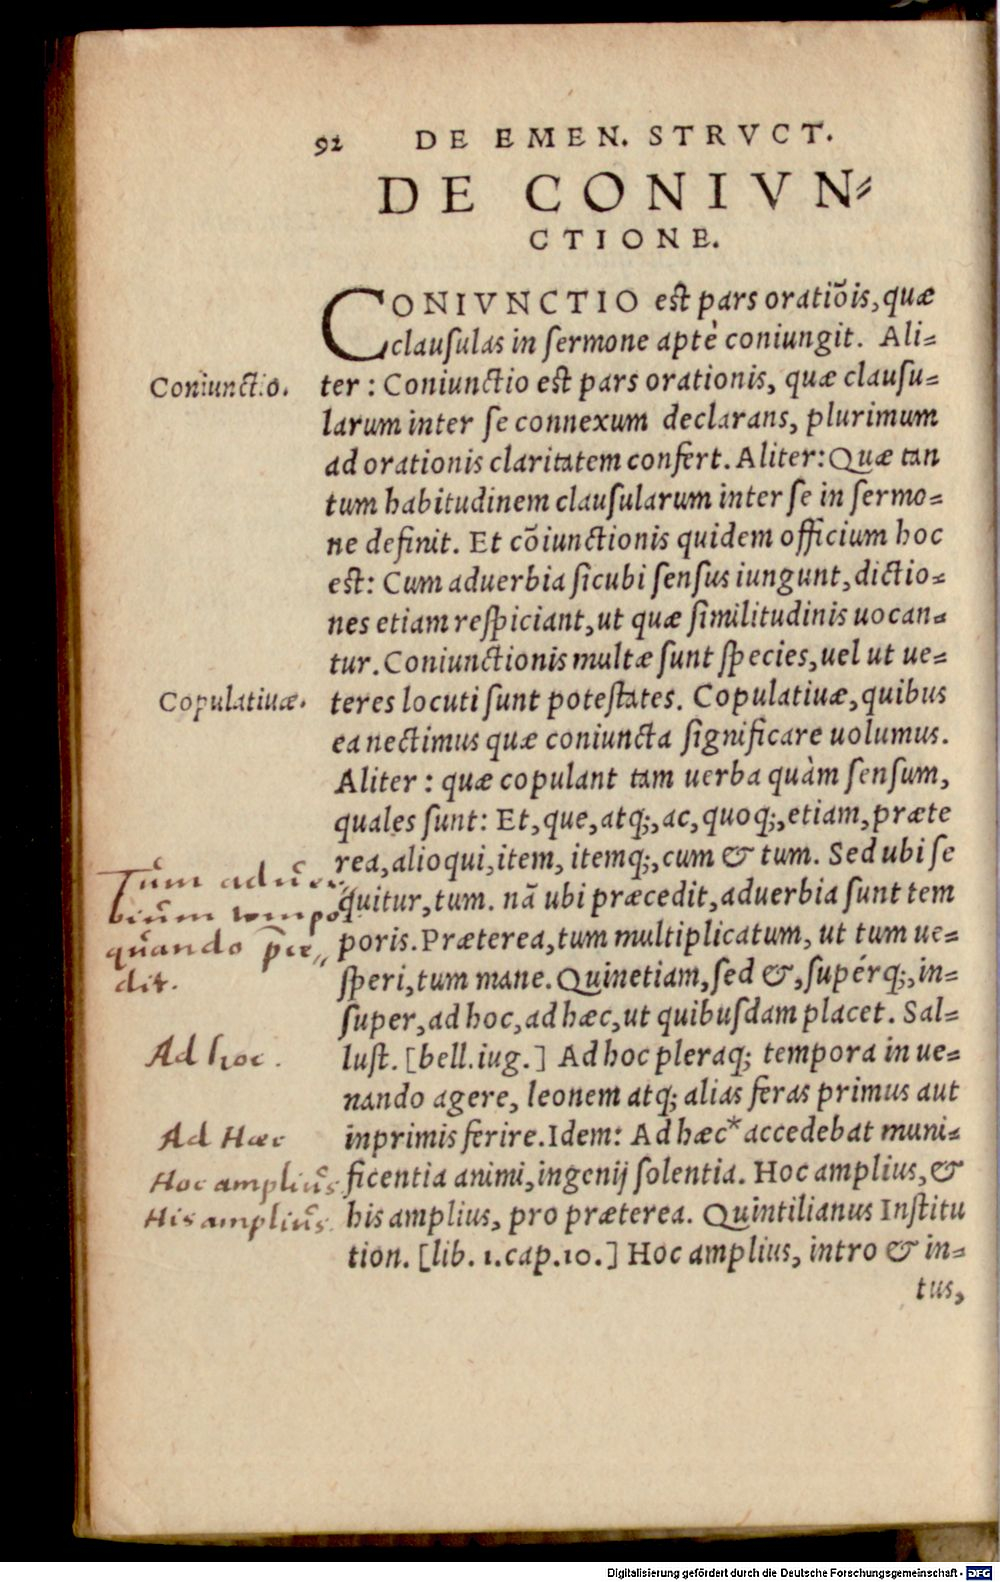 92 DE EMEN. STRVCT.
DE CONIVN⸗
CTIONE.
CONIVNCTIO est pars oratiõis, quæ
clauſulas in ſermone aptè coniungit. Ali⸗
Coniunctio.
ter: Coniunctio est pars orationis, quæ clauſu⸗
larum inter ſe connexum declarans, plurimum
ad orationis claritatem confert. Aliter: Quæ tan
tum habitudinem clauſularum inter ſe in ſermo⸗
ne definit. Et cõiunctionis quidem officium hoc
est: Cum aduerbia ſicubi ſenſus iungunt, dictio⸗
nes etiam reſpiciant, ut quæ ſimilitudinis uocan⸗
tur. Coniunctionis multæ ſunt ſpecies, uel ut ue⸗
Copulatiuæ.
teres locuti ſunt poteſtates. Copulatiuæ, quibus
ea nectimus quæ coniuncta ſignificare uolumus.
Aliter: quæ copulant tam uerba quàm ſenſum,
quales ſunt: Et, que, atq;, ac, quoq;, etiam, præte
rea, alioqui, item, itemq;, cum & tum. Sed ubi ſe
quitur, tum. nã ubi præcedit, aduerbia ſunt tem
poris. Præterea, tum multiplicatum, ut tum ue⸗
ſperi, tum mane. Quinetiam, ſed &, ſupérq;, in⸗
ſuper, ad hoc, ad hæc, ut quibuſdam placet. Sal⸗
Tum aduer
bium tempo
quando præ⸗
dit.
Ad hoc.
luſt. [bell. iug.] Ad hoc pleraq; tempora in ue⸗
nando agere, leonem atq; alias feras primus aut
Ad Hæc
inprimis ferire. Idem: Ad hæc* accedebat muni⸗
Hoc amplius
ficentia animi, ingenij ſolentia. Hoc amplius, &
His amplius.
his amplius, pro præterea. Quintilianus Inſtitu
tion. [lib. 1. cap. 10.] Hoc amplius, intro & in⸗
tus,
Digitalisierung gefördert durch die Deutsche Forschungsgemeinschaft - DFG